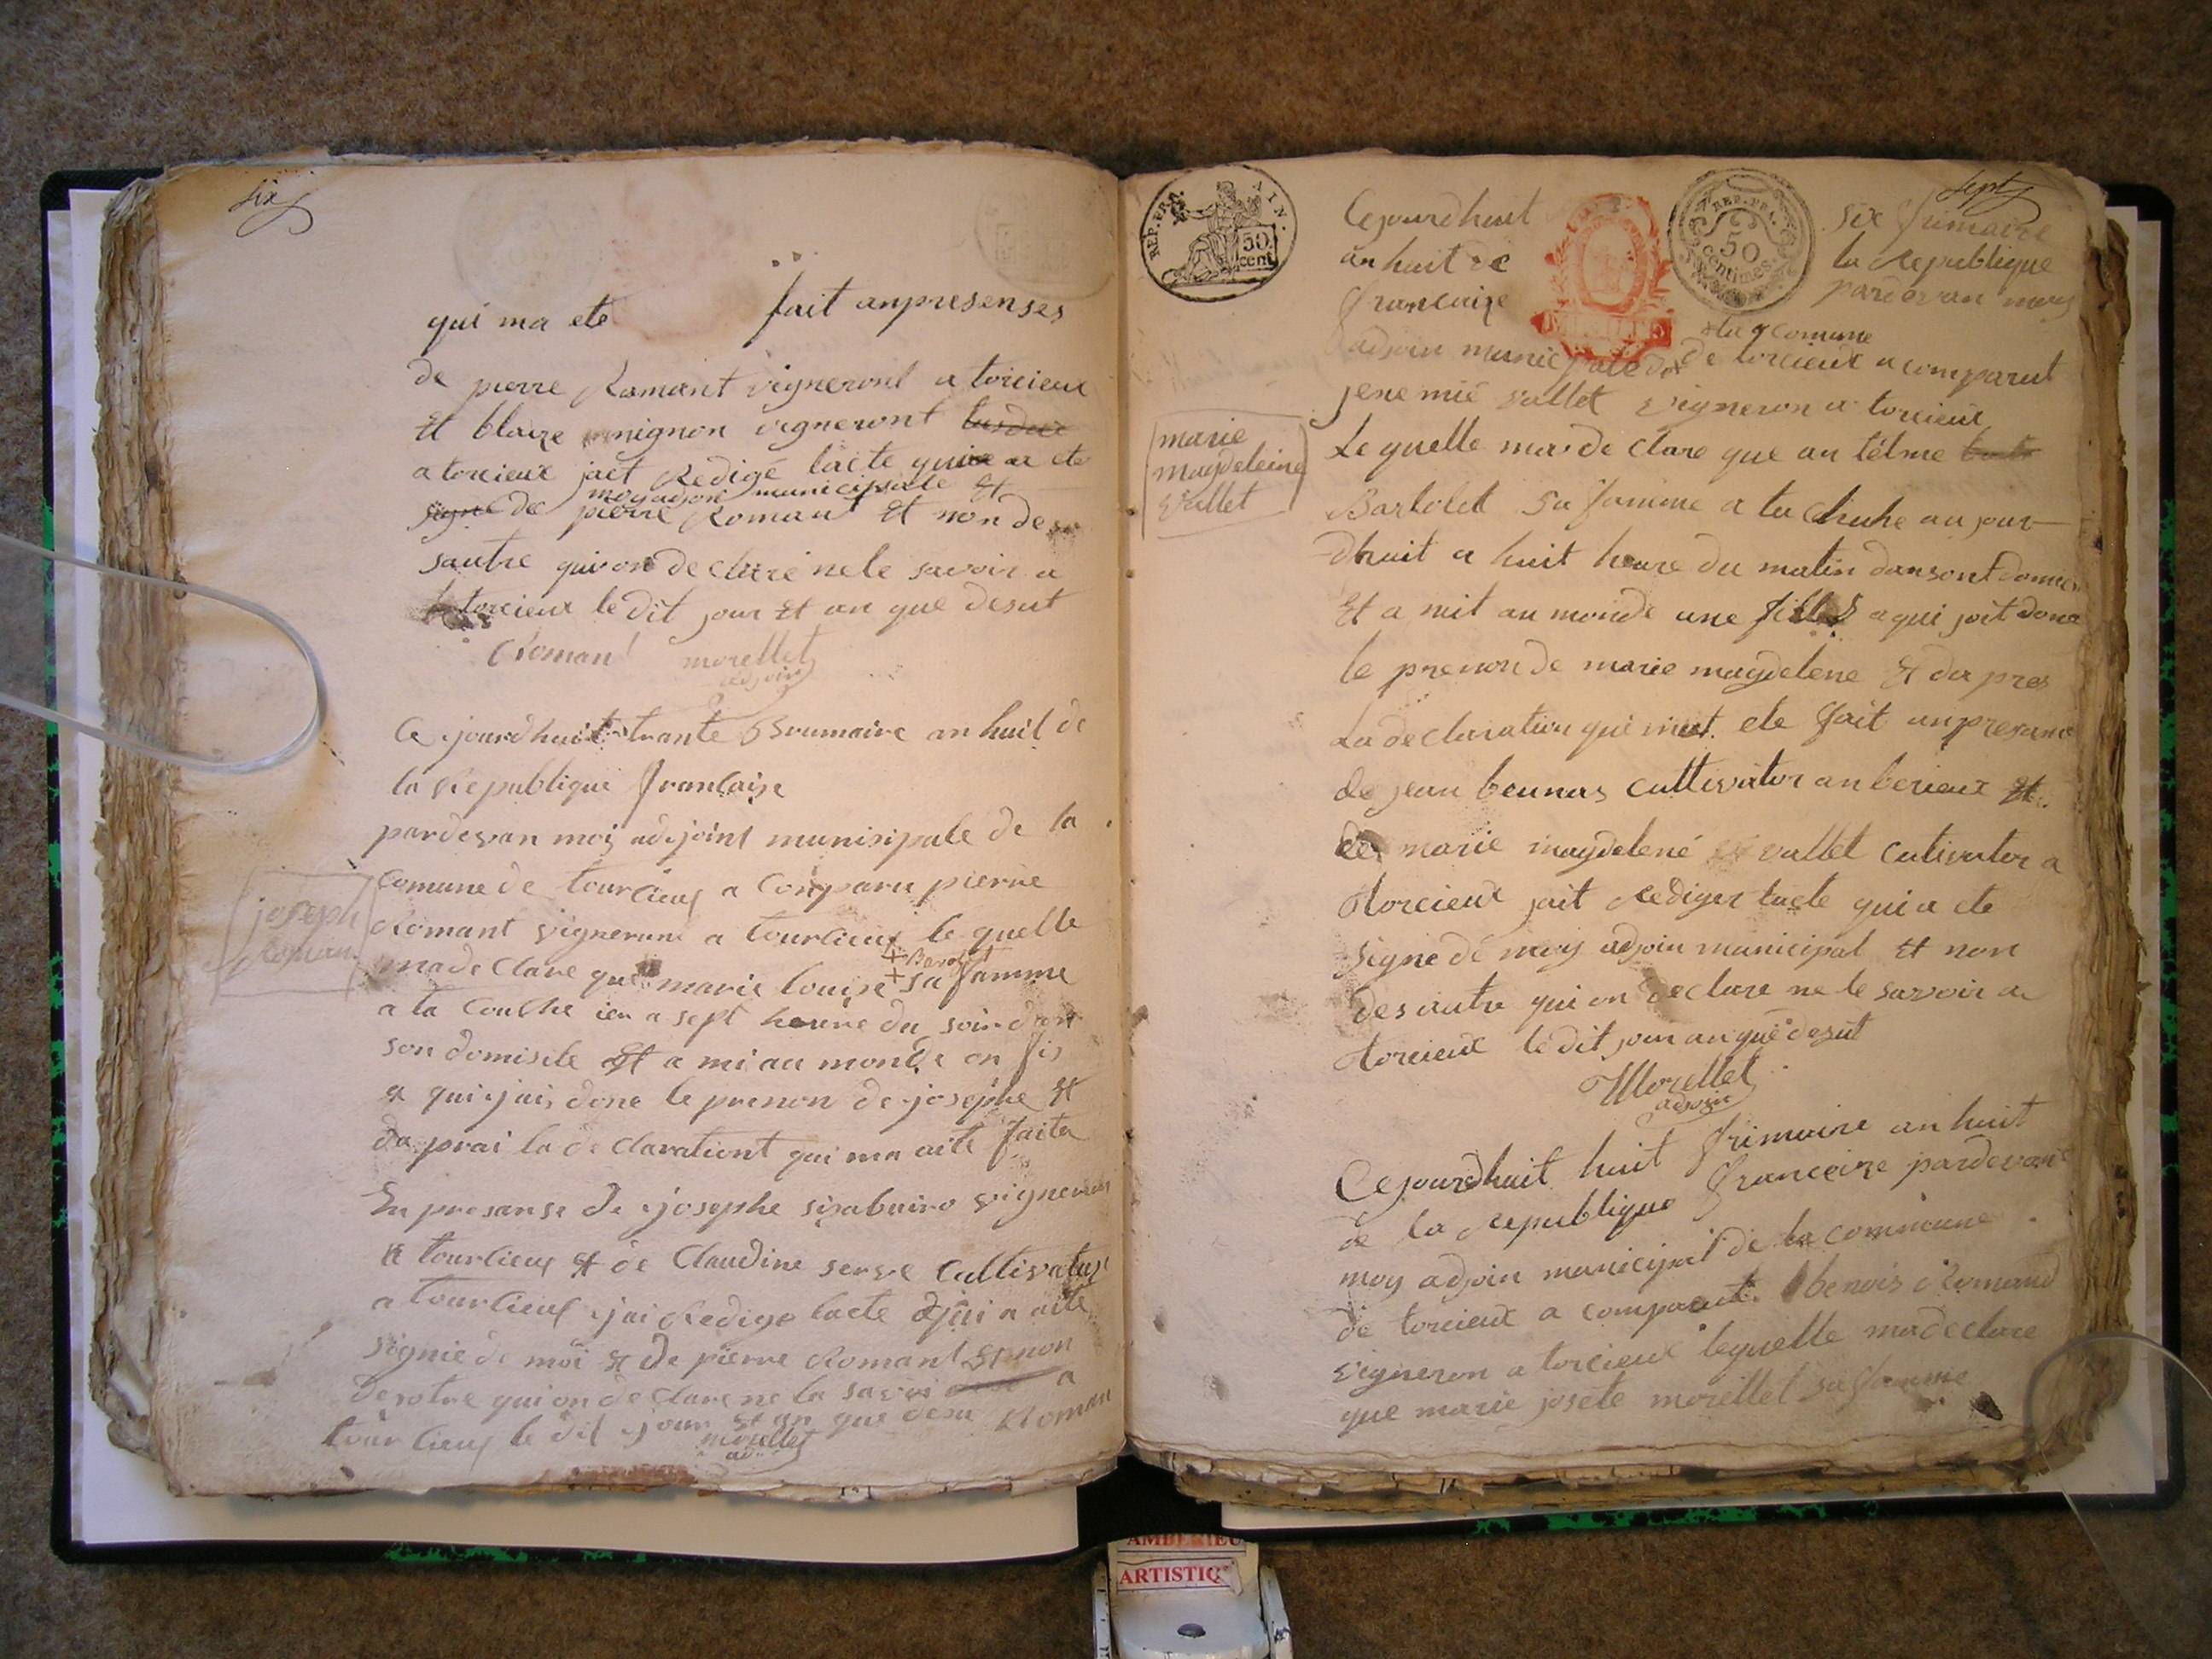 six
qui ma ete fait anpresenses
de pierre Romant vigneront a torcieux
Et blaize mignon vigneront
a torcieux jaet Redigé lacte qui a ete
moy adjoin municipale Et
signe de pierre Romant Et non de
sautre qui on de Claré ne le savoir a
torcieux le dit jour Et an que desut
Roman morellet
adjoin
Ce jourdhuit trante Brumaire an huit de
la Republique francaise
pardevan moi adjoint munisipale de la
Comune de tourcieux a Conparu pierre
Romant vigneront a tourcieux le quelle
joseph
Roman
ma de Clare que marie louise sa famme
a ta Couche ier a sept heure du soir dan
son domisile Et a mi au monde on fis
a qui jais done le prenon de josephe Et
da prai la de Clarationt qui ma aité faite
En presanse de josephe vigneront
a tourcieux Et de Claudine serve Cultivatus
a tourcieux jai Redige lacte qui a aite
signie de moi Et de pierre Romant Et non
de rotre qui on de clare ne la savoi a
tourcieux le dit jour Et an que desu Roman
morellet
ad
sept
REP. FRA. AIN.
50 cent
REP. FRA.
50 centimes
Cejourdhuit six frimaire
an huit de la Republique
francaize pardevan moy
de la Comune
adjoin municipale de torcieux a comparut
jene mié vallet vigneron a torcieux
marie
magdeleine
vallet
Le quelle ma de Clare que an télme
Bartolet sa famme a ta Chuhe au jour
dhuit a huit heure du matin dan sont domi
Et a mit au monde une fille a qui joit done
le prenon de marie magdelene Et da pres
La declaration qui met ete fait anpresanse
de jean beunas cultivator an berieux Et
de marie magdelené vallet cutivator a
torcieux jait Rediger lacte qui a ete
signe de moy adjoin municipal Et non
des autre qui on declare ne le savoir a
torcieux le dit jour an que desut
Morellet
adjoin
Cejourdhuit huit frimaire an huit
de la Republique francaize pardevant
moy adjoin municipal de la commune
de torcieux a comparut benois Romand
vigneron a torcieux lequelle ma declare
que marie josete morellet sa famme
AMBERIEU
ARTISTIQ